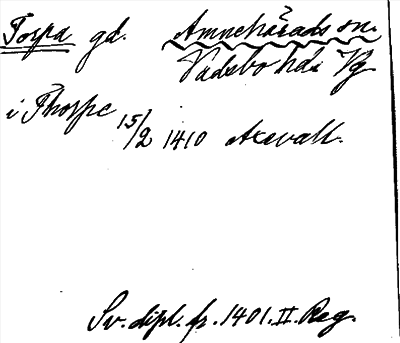 Torpa gd. Amnehärads sn.
Vadsbo hd. Vg
i Thorpe 15/2 1410 Axevall.
Sv. dipl. fr. 1401. II. Reg.